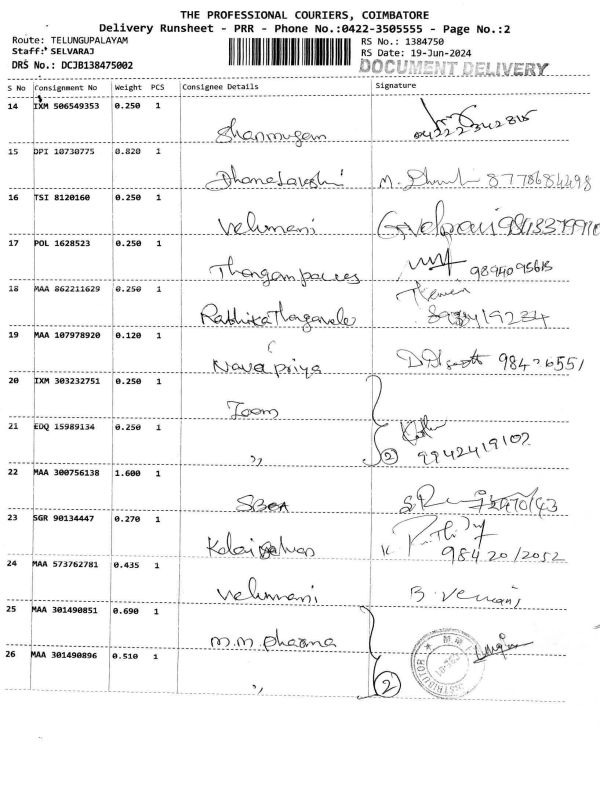 THE PROFESSIONAL COURIERS, COIMBATORE
Delivery Runsheet - PRR - Phone No.:0422-3505555 - Page No.:2
Route: TELUNGUPALAYAM RS No.: 1384750
Staff: SELVARAJ RS Date: 19-Jun-2024
DRS No.: DCJB138475002 DOCUMENT DELIVERY
S No Consignment No Weight PCS Consignee Details Signature
14 IXM 506549353 0.250 1
Shanmugam 04222342815
15 DPI 10730775 0.820 1
Dhanalakshmi M. 8778684498
16 TSI 8120160 0.250 1
Velumani
17 POL 1628523 0.250 1
9894095613
18 MAA 862211629 0.250 1
19 MAA 107978920 0.120 1
Navapriya
20 IXM 303232751 0.250 1
Zoom
21 EDQ 15989134 0.250 1
,, 2 9942419102
22 MAA 300756138 1.600 1
23 SGR 90134447 0.270 1
9842012052
24 MAA 573762781 0.435 1
Velumani B.
25 MAA 301490851 0.690 1
M.M pharma
26 MAA 301490896 0.510 1
,, 2